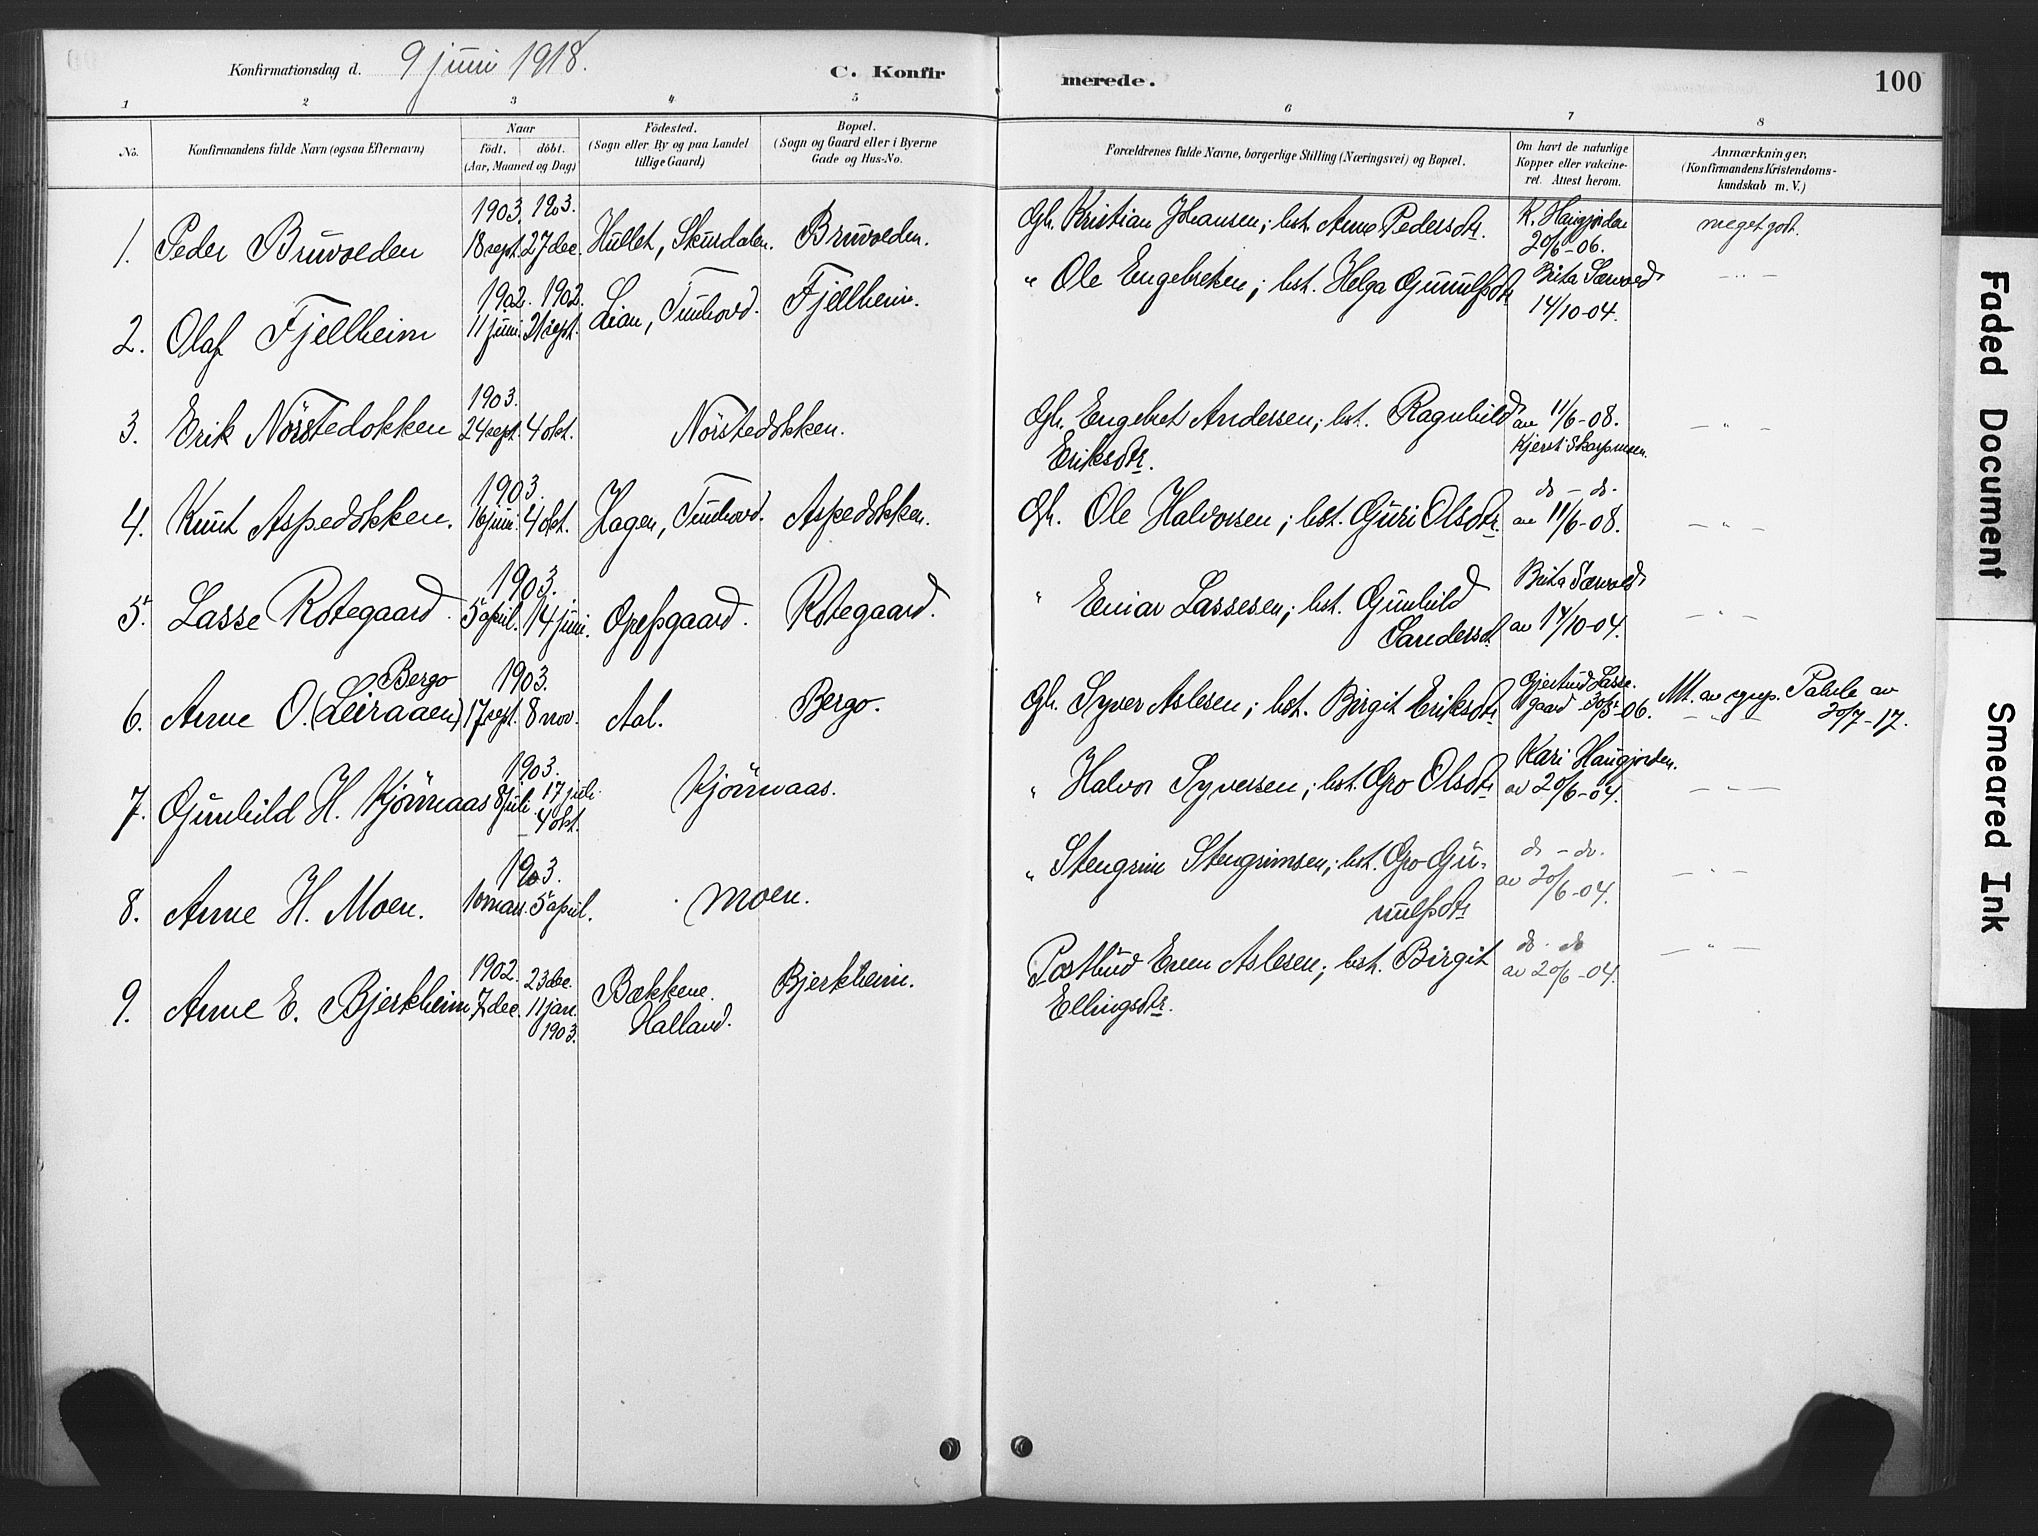 Konfirmationsdag d. 9 juni 1918. C. Konfir merede. 100
1 2 3 4 5 6 7 8
No. Konfirmandens fulde Navn (ogsaa Efternavn) Naar født. døbt. (Aar, Maaned og Dag) Födested. (Sogn eller By og paa Landet tillige Gaard) Bopæl. (Sogn og Gaard eller i Byerne Gade og Hus-No. Forældrenes fulde Navne, borgerlige Stilling (Næringsvei) og Bopæl. Om havt de naturlige Kopper eller vakcineret. Attest herom. Anmærkninger, (Konfirmandens Kristendomskundskab m. V.)
1903. 1903.
1. Peder Bruvolden 18 sept. 27 dec. Hullet, Skurdalen. Bruvolden. Gh. Kristian Johansen; hst. Anne Pedersdtr. K. Haugjorden 20/6-06. meget godt.
1902. 1902.
2. Olaf Fjellheim 11 juni. 21 sept. Lian, Tunhovd. Fjellheim. " Ole Engebretsen; hst. Helga Gunulfsdtr 14/10-04. – " –
1903.
3. Erik Nörstedokken 24 sept. 4 okt. Nörstedokken. Gh. Engebret Andersen; hst. Ragnhild av 11/6-08.
Eriksdtr. – " –
1903.
4. Knut Aspedokken. 16 juni. 4 okt. Hagen, Tunhovd. Aspedokken. Gh. Ole Halvorsen; hst. Guri Olsdtr. do – do. av 11/6-08. – " –
1903.
5. Lasse Rotegaard. 5 april. 14 juni. Opefsgaard. Rotegaard. " Einar Lassesen; hst. Gunhild
Sandersd. av 14/10-04. – " –
Bergo 1903.
6. Anne O. (Leiraaen) 17 sept. 8 nov. Aal. Bergo. Gh. Syver Aslesen; hst. Birgit Eriksdtr Gjertrud Lassegaard 30/5-06. – " – 20/7-17.
1903.
7. Gunhild H. Kjönnaas 8 juli. 17 juli – 4 okt. Kjönnaas. " Halvor Syversen; hst. Gro Olsdtr Kari Haugjorden. av 20/6-04. – " –
1903.
8. Anne H. Moen. 10 mars. 5 april. Moen. " Stengrim Stengrimsen; hst. Gro Gunulfsdtr do – do. av 20/6-04. – " –
1902. 23 dec.
9. Anne E. Bjerkheim 7 dec. 11 jan. 1903. Bækkene. Halland. Bjerkheim. Postbud Even Aslesen; hst. Birgit do - do av 20/6-04. – " –
Ellingsdtr.
Faded Document
Smeared Ink